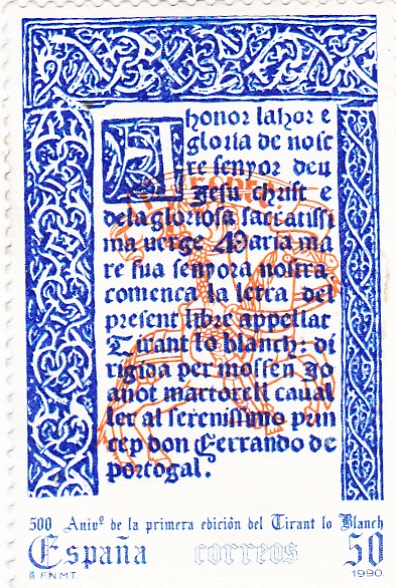 A honor lahor e
gloria de nost
re senyor deu
Jesu christ e
dela gloriosa sacratissi
ma verge Maria ma
re sua senyora nostra
comença la letra del
present libre appellat
Tirant lo blanch: di
rigida per mossen Jo
anot martorell caual
ler al serenissimo prin
cep don Ferrando de
portogal.
500 Anivº de la primera edición del Tirant lo Blanch
España correos 50
F.N.M.T. 1990